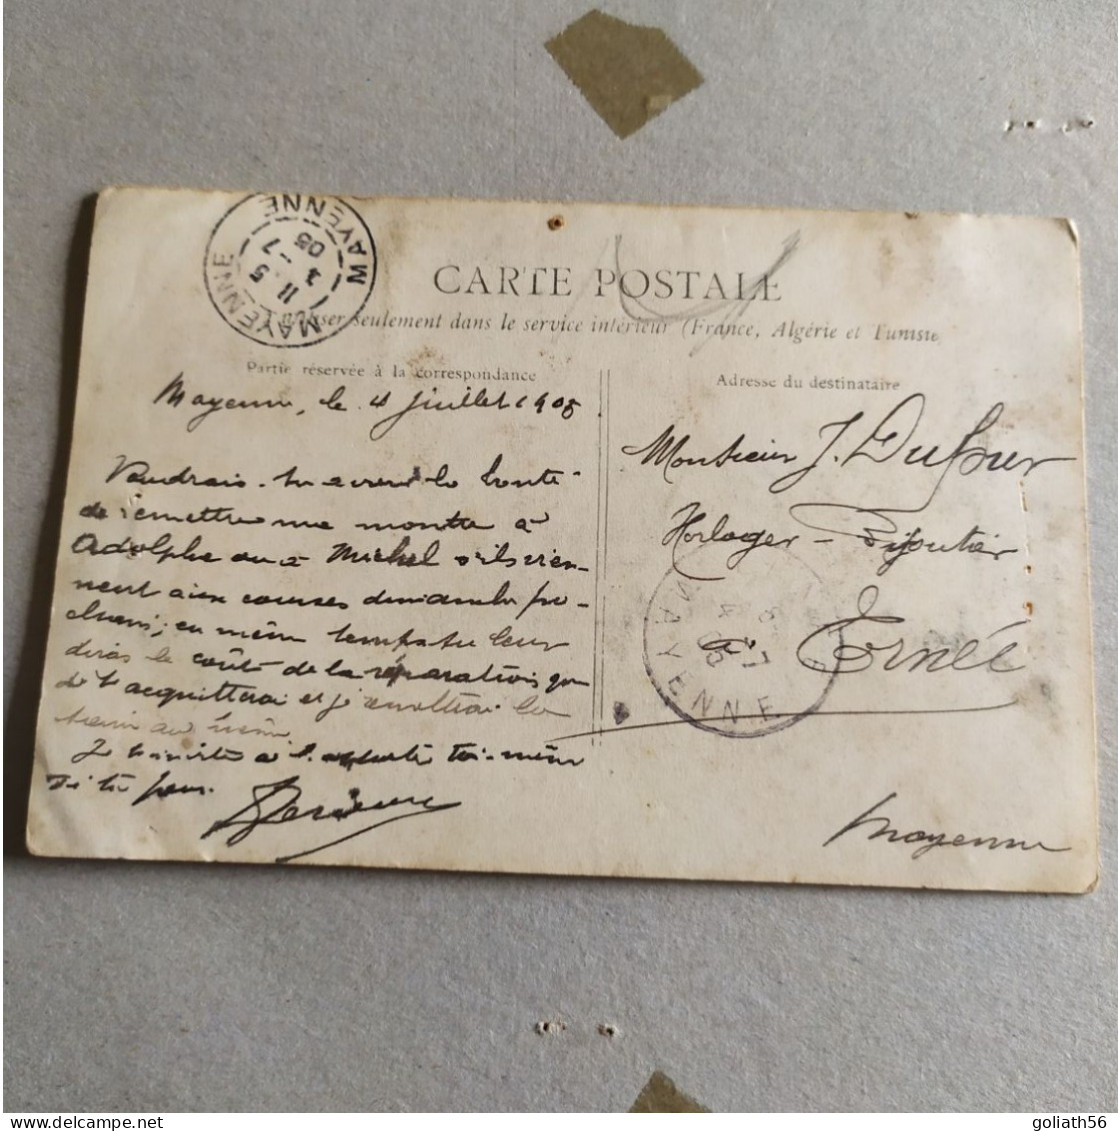 MAYENNE MAYENNE
11 5
4 -7
05
CARTE POSTALE
à utiliser seulement dans le service intérieur (France, Algérie et Tunisie
Partie réservée à la correspondance
Mayenne, le 4 juillet 1905
Voudrais-tu avoir la bonté
de remettre ma montre à
Adolphe ou à Michel s'ils vien-
nent aux courses dimanche pro-
chain; en même temps tu leur
diras le coût de la réparation que
je t'acquitterai et j'
au même
Je t'invite à l'apporter toi-même
si tu peux.
Adresse du destinataire
Monsieur J. Dufour
Horloger-Bijoutier
Ernée
Mayenne
MAYENNE
goliath56